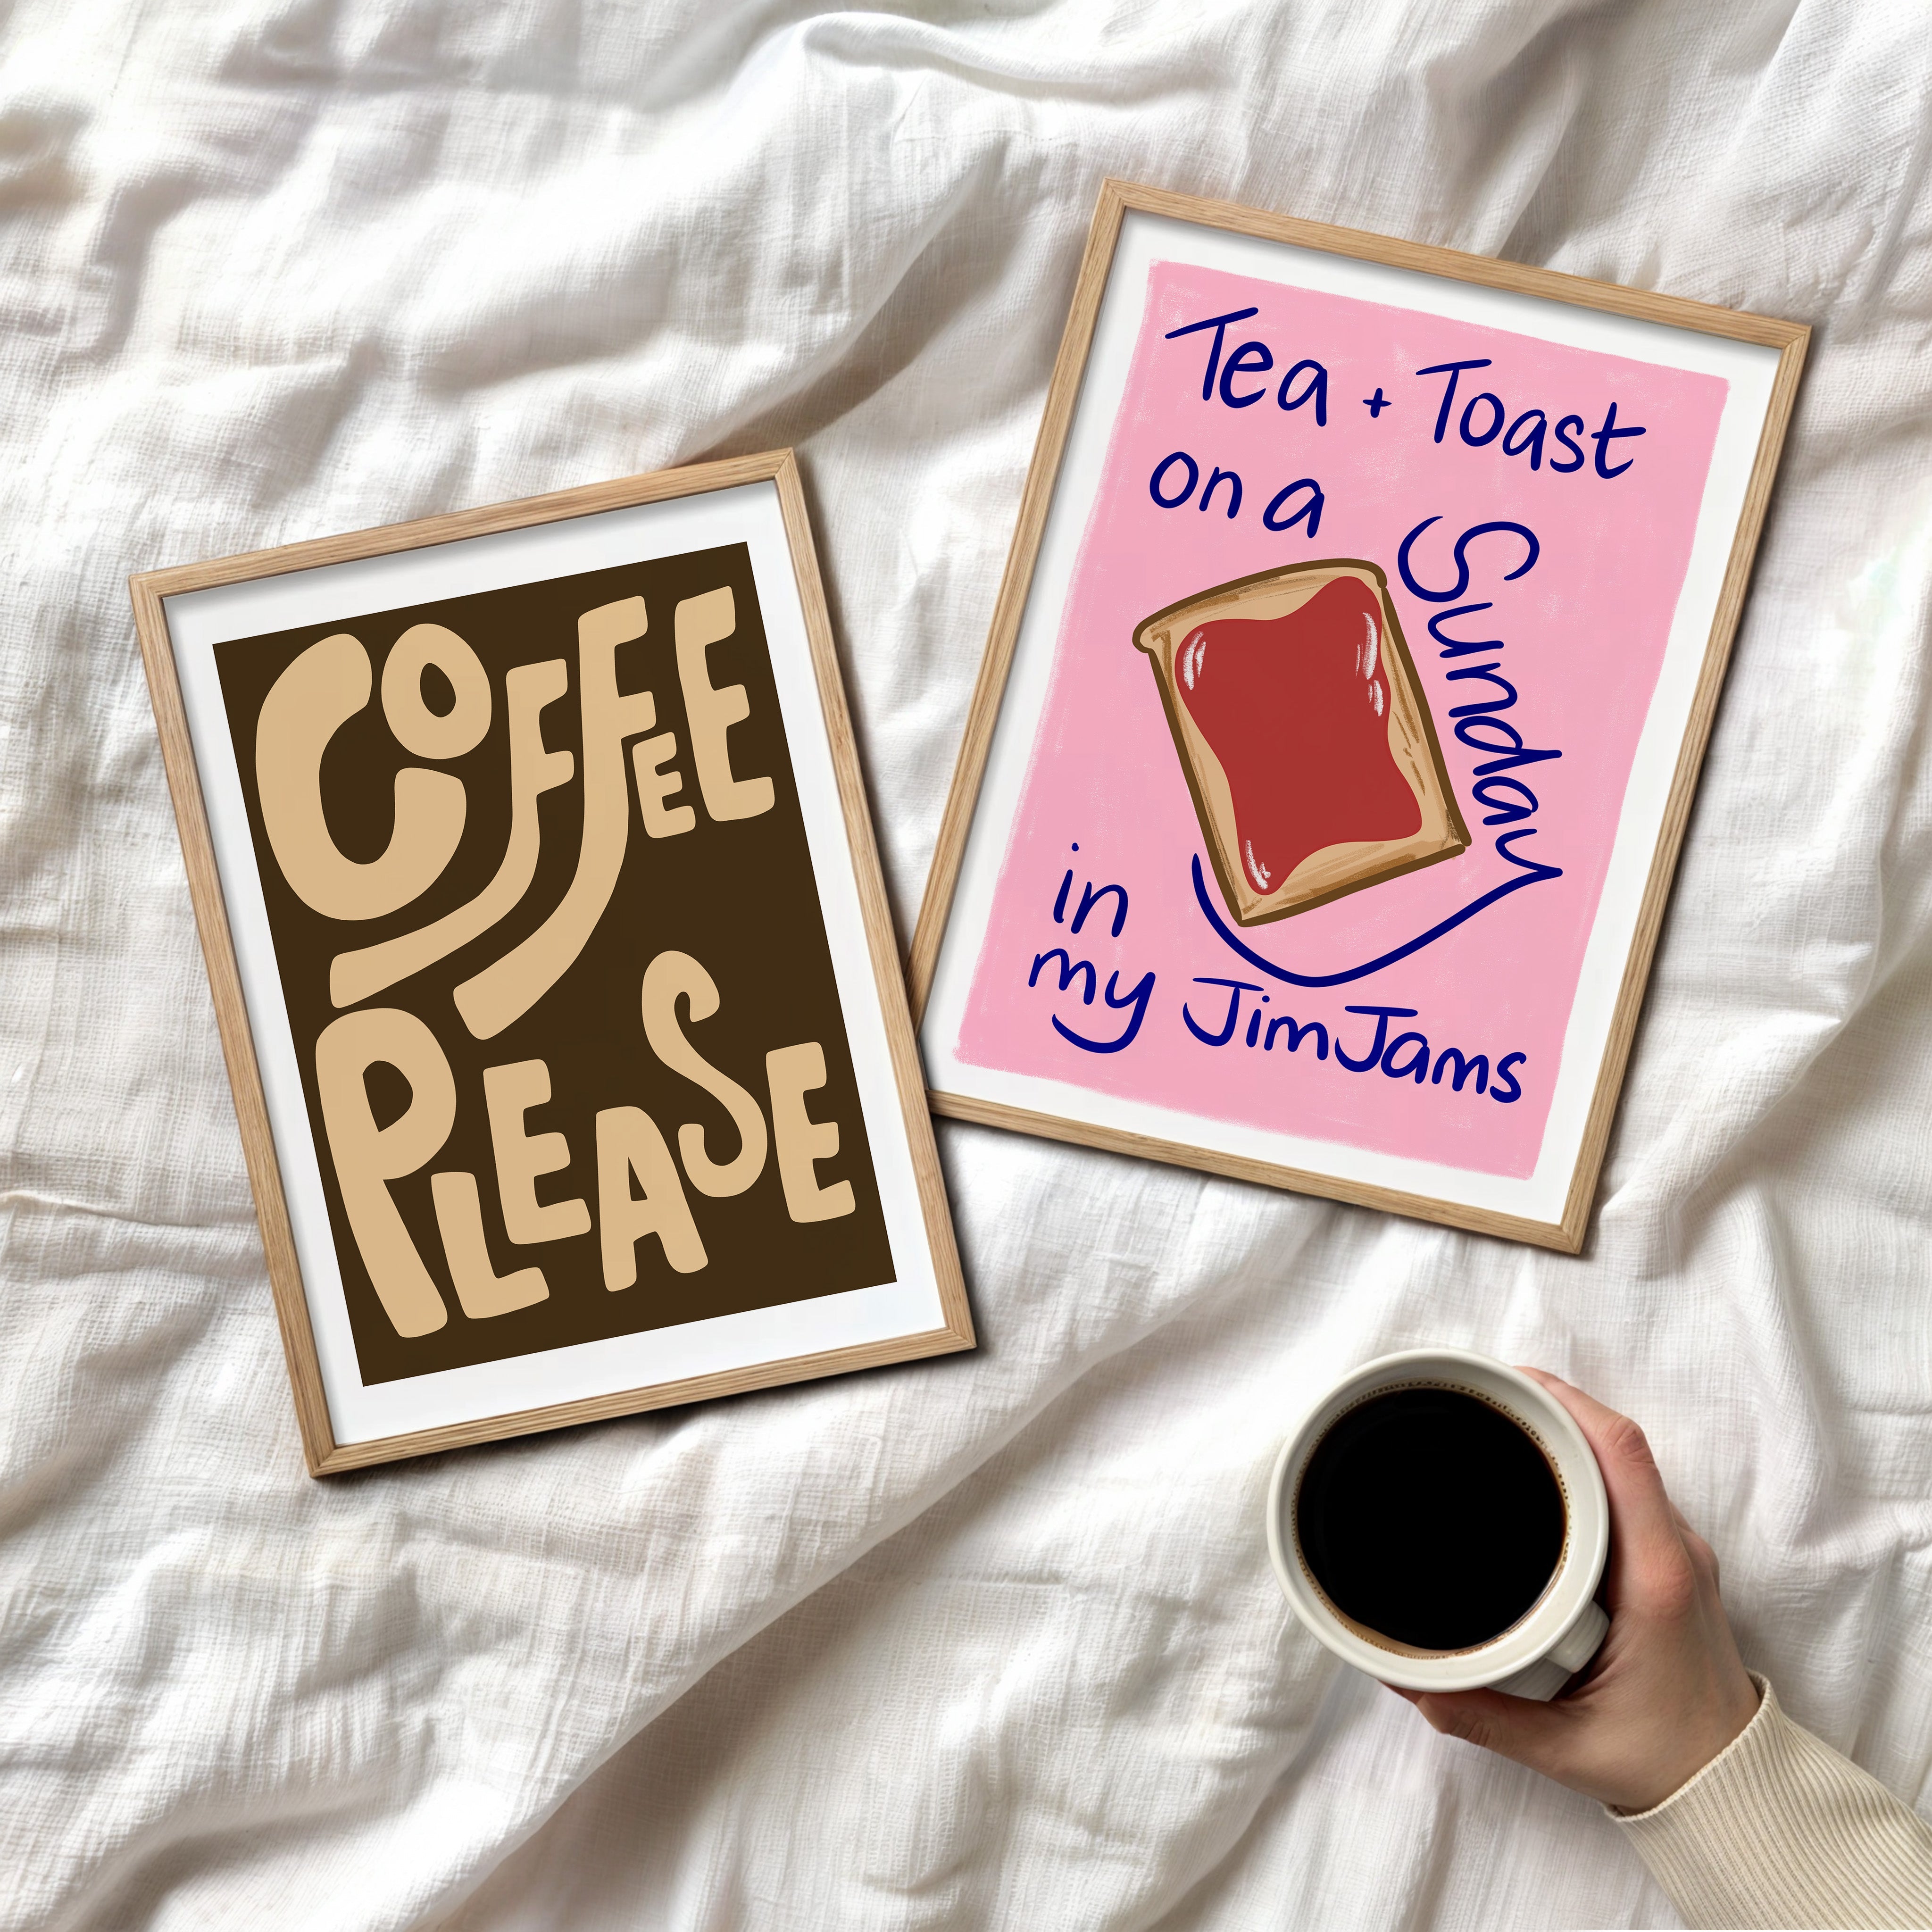 COFFEE
PLEASE
Tea + Toast
on a
Sunday
in
my JimJams